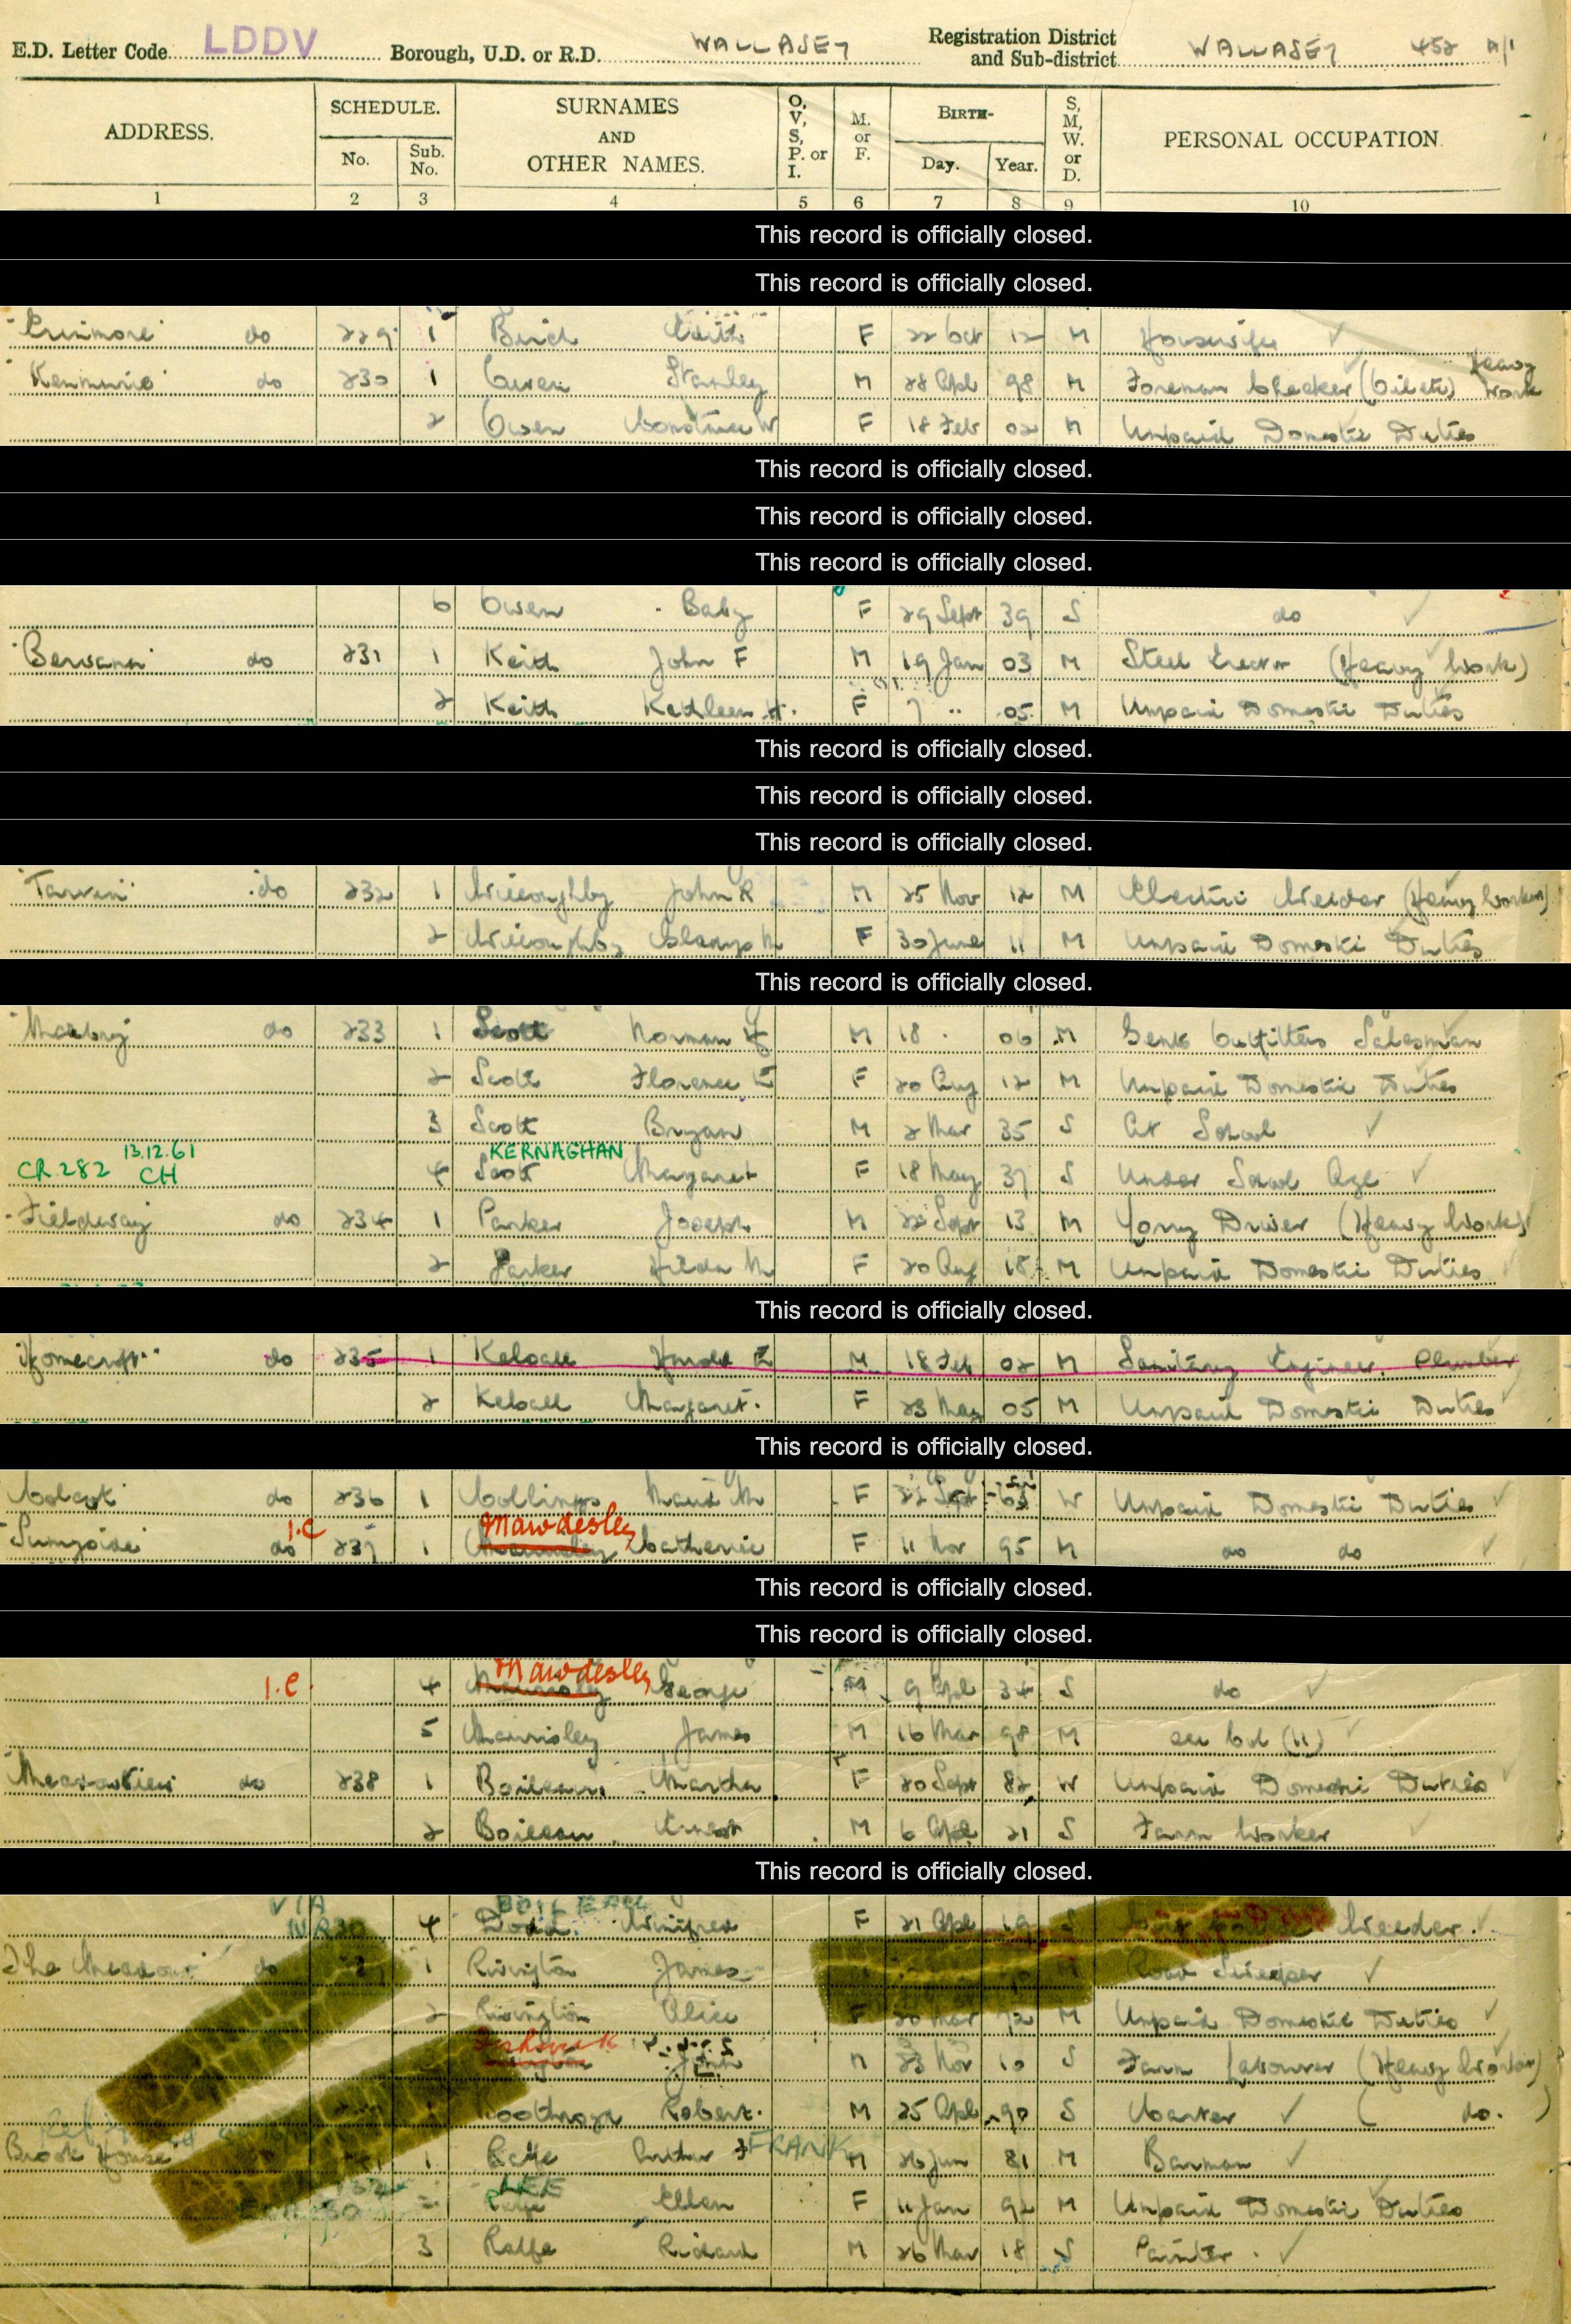 E.D. Letter Code LDDV Borough, U.D. or R.D. WALLASEY Registration District and Sub-district WALLASEY 452 A/1
ADDRESS. SCHEDULE. No. Sub. No. SURNAMES AND OTHER NAMES. O, V, S, P. or I. M. or F. BIRTH- Day. Year. S, M, W. or D. PERSONAL OCCUPATION.
1 2 3 4 5 6 7 8 9 10
This record is officially closed.
This record is officially closed.
do 229 1 F 22 Oct 12 M Housewife
do 230 1 Owen Stanley M 28 Apl 98 M Foreman Checker Heavy Work
2 Owen Constance W F 18 Feb 02 M Unpaid Domestic Duties
This record is officially closed.
This record is officially closed.
This record is officially closed.
6 Owen Baby F 29 Sept 39 S do
do 231 1 Keith John F M 19 Jan 03 M Steel Erector (Heavy Work)
2 Keith Kathleen H. F 7 " 05 M Unpaid Domestic Duties
This record is officially closed.
This record is officially closed.
This record is officially closed.
do 232 1 Willoughby John R M 25 Nov 12 M Electric Welder (Heavy Worker)
2 Willoughby Gladys M F 30 June 11 M Unpaid Domestic Duties
This record is officially closed.
do 233 1 Scott Norman H M 18 06 M Gents Outfitters Salesman
2 Scott Florence E F 20 Aug 12 M Unpaid Domestic Duties
3 Scott Bryan M 2 Mar 35 S At School
CR 282 13.12.61 CH 4 KERNAGHAN Scott Margaret F 18 May 37 S Under School Age
"Fieldway" do 234 1 Parker Joseph M 22 Sept 13 M Lorry Driver (Heavy Work)
2 Parker Hilda M F 20 Aug 18 M Unpaid Domestic Duties
This record is officially closed.
"Homecroft" do 235 1 Kelsall Harold E M 18 Feb 02 M Sanitary Engineer. Plumber
2 Kelsall Margaret. F 23 May 05 M Unpaid Domestic Duties
This record is officially closed.
do 236 1 Collings Maud M F 22 Sept W Unpaid Domestic Duties
"Sunnyside" do I.C 237 1 Mawdesley Catherine F 11 Nov 95 M do do
This record is officially closed.
This record is officially closed.
I.C. 4 Mawdesley George M 9 Apl 34 S do
5 James M 16 Mar 98 M see col (11)
"Meadowview" do 238 1 Boileau Martha F 20 Sept 82 W Unpaid Domestic Duties
2 Boileau Ernest M 6 Apl 21 S Farm Worker
This record is officially closed.
VIA NR30 4 BOILEAU Dodd Winifred F 21 Apl 19 S Welder.
The Meadows do 1 Rivington James Road Sweeper
2 Rivington Alice F 20 Mar 92 M Unpaid Domestic Duties
John M 23 Nov 10 S Farm Labourer (Heavy Worker)
Robert. M 25 Apl 90 S Carter ( do. )
Brook House 1 Arthur F FRANK M 26 Jun 81 M Barman
Ellen F 11 Jan 92 M Unpaid Domestic Duties
3 Rolfe Richard M 26 Mar 18 S Painter.